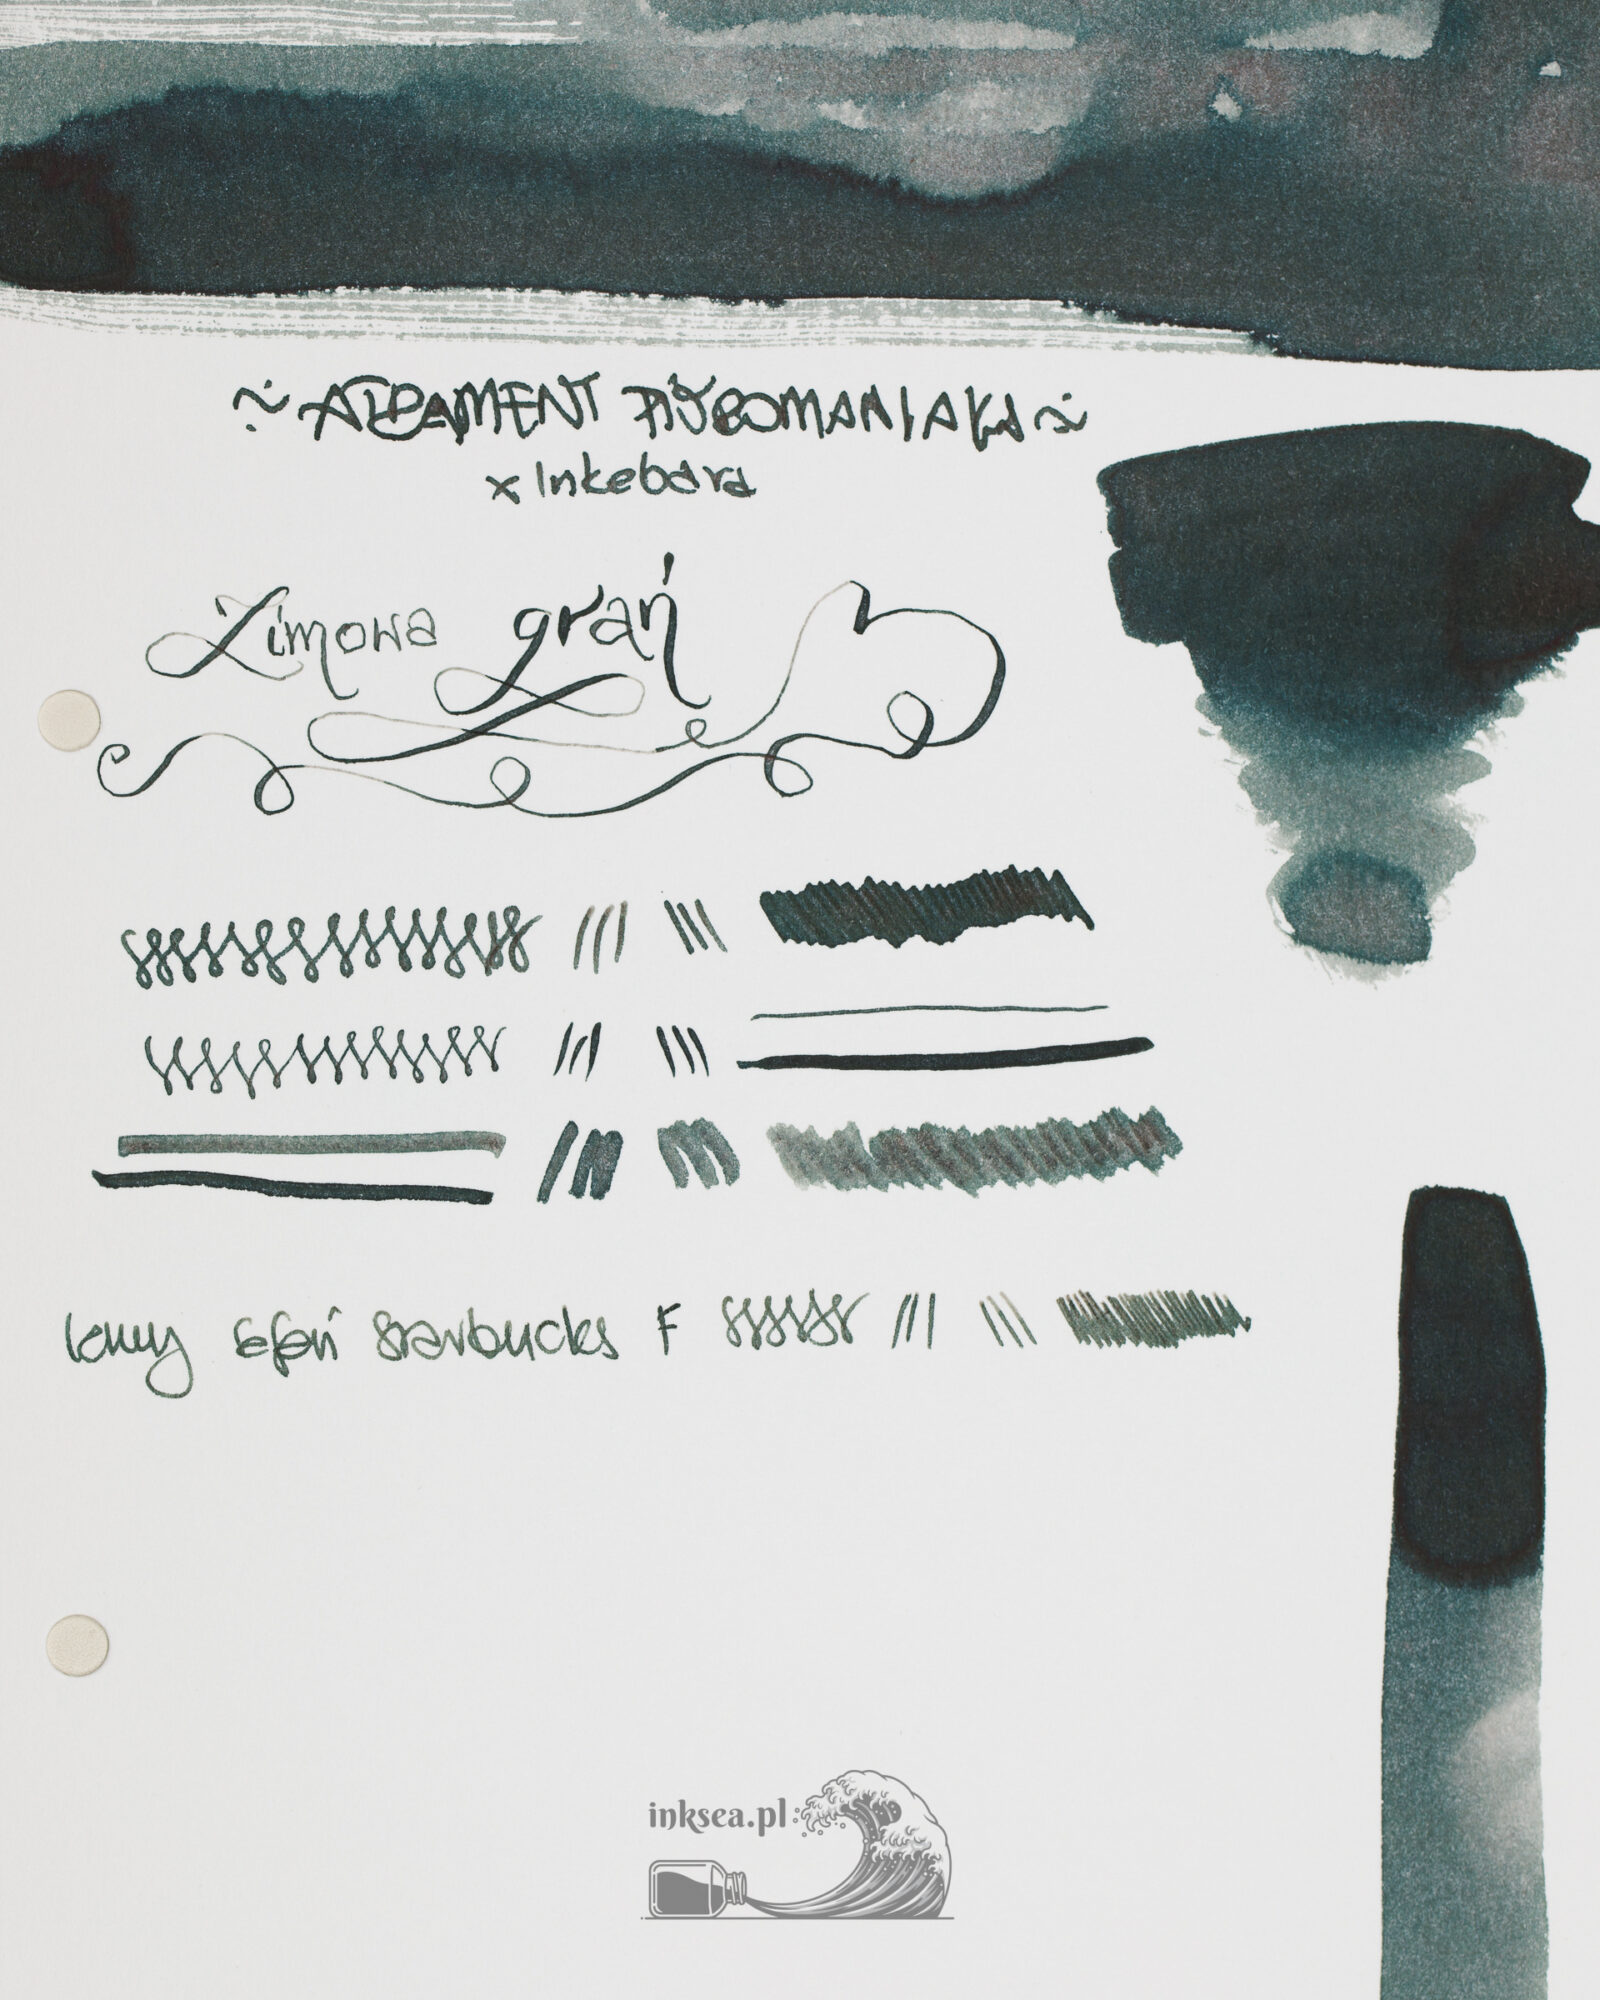 ~ ATRAMENT PIÓROMANIAKA ~
x Inkebara
Zimowa grań
Lamy Safari Starbucks F
inksea.pl